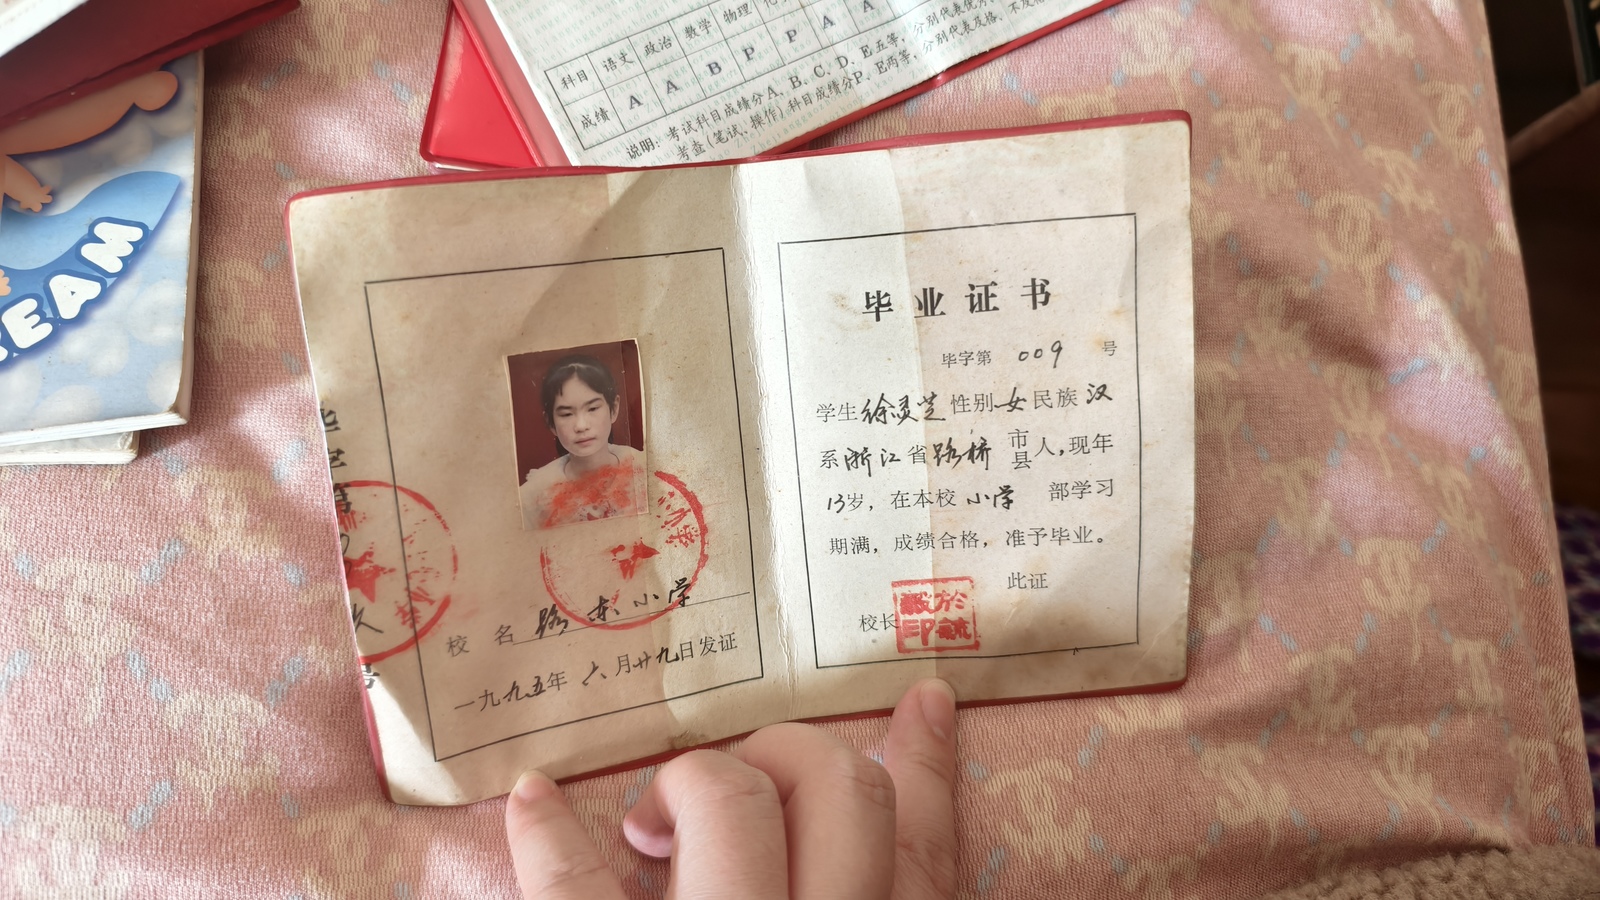 科目 语文 政治 数学 物理
成绩 A A B P P A A
说明：考试科目成绩分A、B、C、D、E五等，分别代表优秀
考查(笔试、操作)科目成绩分P、E两等，分别代表及格、不及格
EAM
校 名 路东小学
一九九五年 六月廿九日发证
毕业证书
毕字第 009 号
学生徐灵芝性别女民族汉
系浙江省路桥市县人，现年
13岁，在本校小学 部学习
期满，成绩合格，准予毕业。
此证
校长